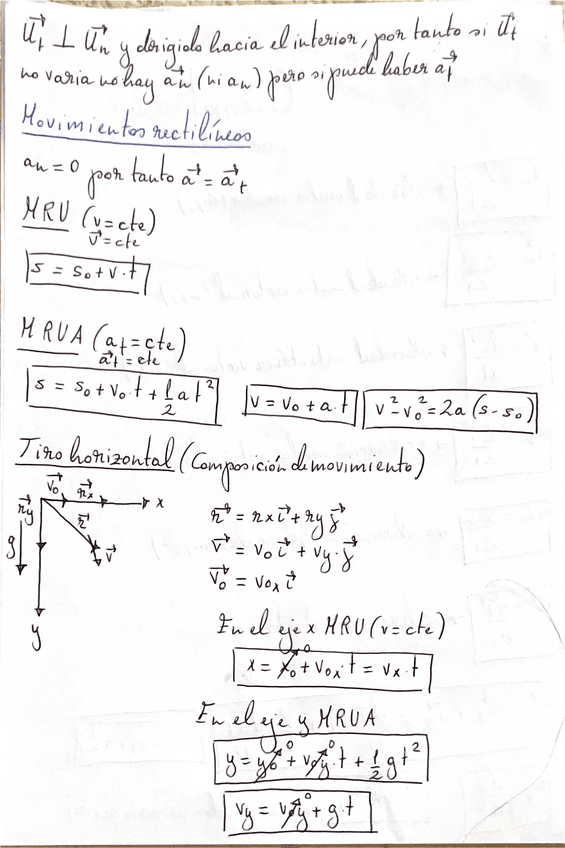 u⃗t ⊥ u⃗n y dirigido hacia el interior, por tanto si u⃗t
no varia no hay a⃗n (ni an) pero si puede haber a⃗t
Movimientos rectilíneos
an = 0 por tanto a⃗ = a⃗t
MRU (v = cte)
v⃗ = cte
s = s₀ + v · t
MRUA (at = cte)
a⃗t = cte
s = s₀ + v₀ · t + 1/2 a t²
v = v₀ + a · t
v² - v₀² = 2a (s - s₀)
Tiro horizontal (Composición de movimiento)
v⃗₀ r⃗x x
r⃗y
r⃗
g
v⃗
y
r⃗ = rx i⃗ + ry j⃗
v⃗ = v₀ i⃗ + vy · j⃗
v⃗₀ = v₀x i⃗
En el eje x MRU (v = cte)
x = x₀⁰ + v₀x · t = vx · t
En el eje y MRUA
y = y₀⁰ + v₀y⁰ · t + 1/2 g t²
vy = v₀y⁰ + g · t